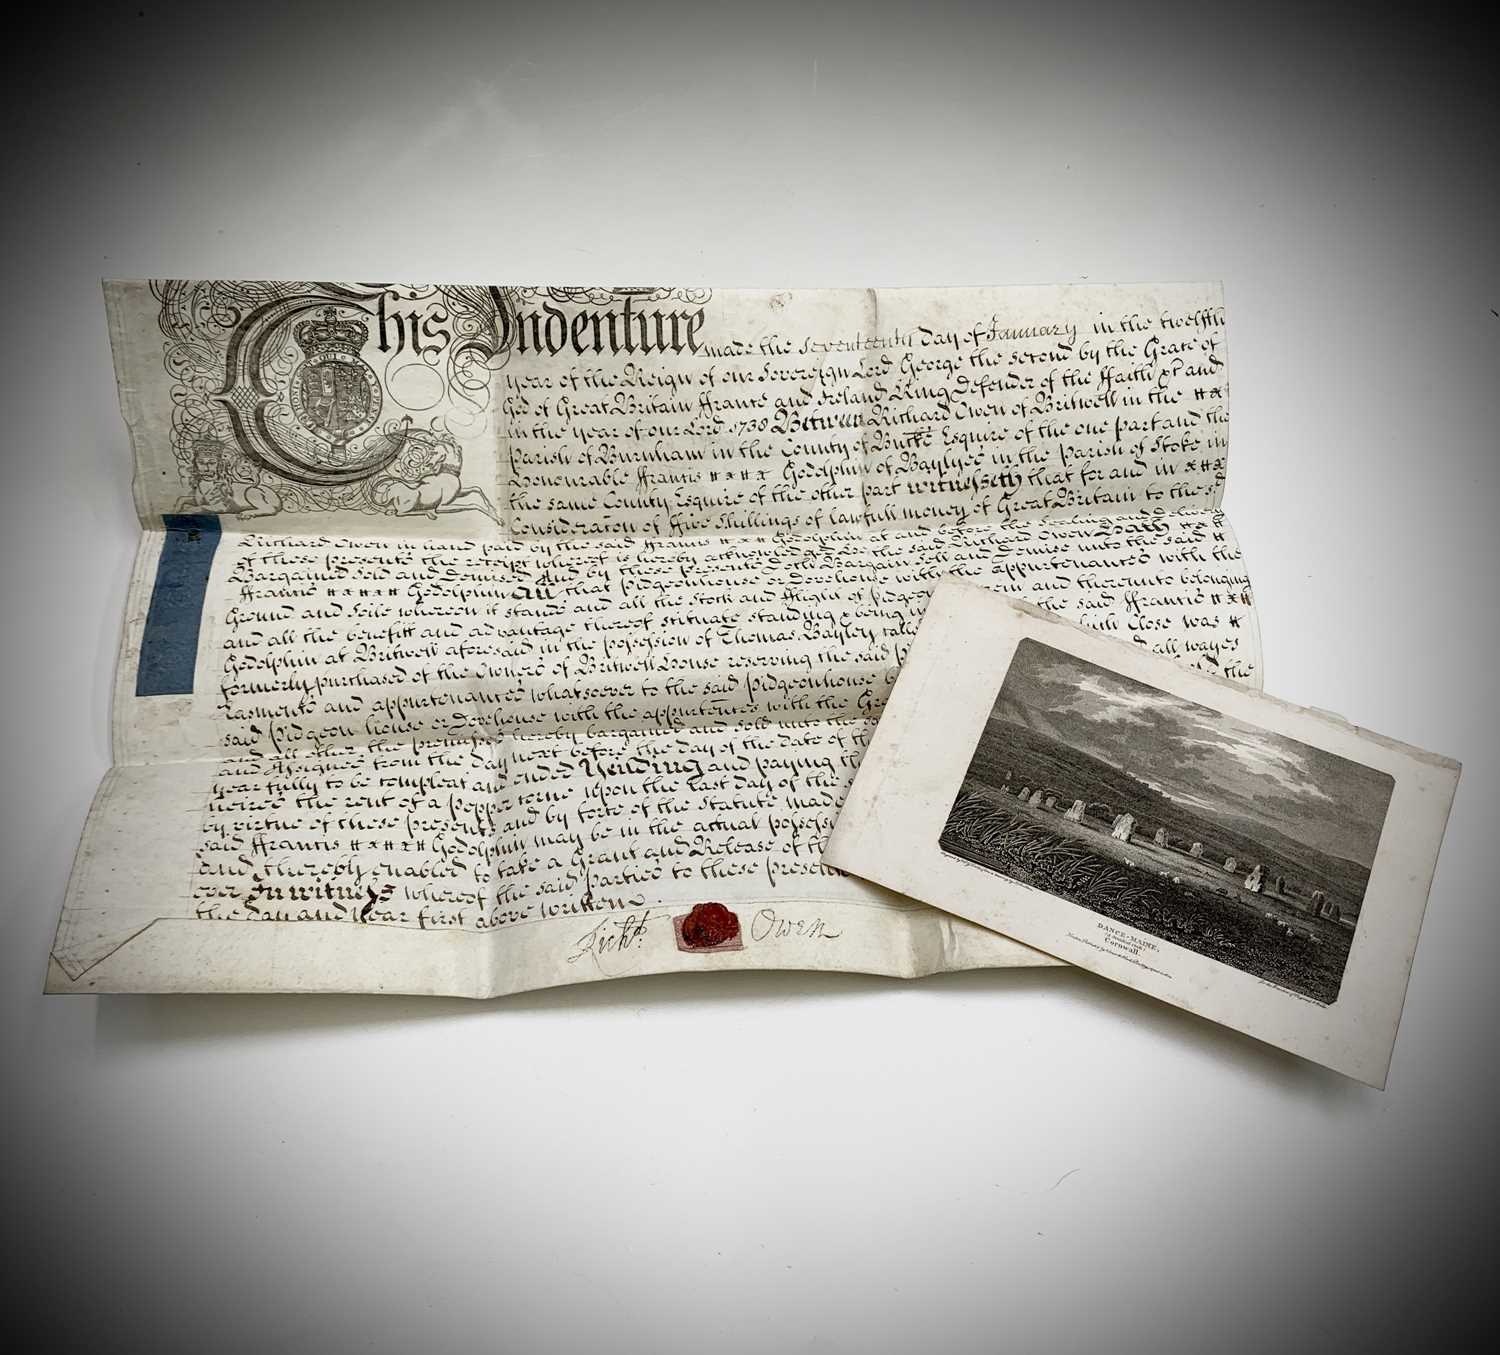 This Indenture made the Seventeenth day of January in the twelfth
year of the Reign of our Sovereign Lord George the second by the Grace of
God of Great Britain ffrance and Ireland King Defender of the ffaith &c and
in the year of our Lord 1738 Between Richard Owen of Britwell in the
parish of Burnham in the County of Bucks Esquire of the one part and the
Honourable ffrancis Godolphin of Baylyes in the parish of Stoke in
the same County Esquire of the other part witnesseth that for and in
Consideracon of ffive Shillings of lawfull money of Great Britain to the sd
Richard Owen in hand paid by the said ffrancis Godolphin at and before the Sealing and delivery
of these presents the receipt whereof is hereby acknowledged He the said Richard Owen Hath
Bargained Sold and demised And by these presents Doth Bargain Sell and Demise unto the said
ffrancis Godolphin All that pidgeonhouse or dovehouse with the appurtenances with the
Ground and Soile whereon it stands and all the Stock and fflight of pidgeo and thereunto belonging
and all the benefitt and advantage thereof situate standing & being in the said ffrancis
Godolphin at Britwell aforesaid in the possession of Thomas Bayley which Close was
formerly purchased of the Owners of Britwell House reserving the said all wayes
Easments and appurtenances whatsoever to the said pidgeonhouse the
said pidgeon house or dovehouse with the appurtences with the
and all other the premisses hereby bargained and sold unto the
and Assignes from the day next before the day of the date of
year fully to be compleat and ended Yeilding and paying
heires the rent of a pepper corne upon the last day of the
by virtue of these presents and by force of the Statute made
said ffrancis Godolphin may be in the actual possessi
and thereby enabled to take a Grant and Release of
ever In witness whereof the said parties to these presen
the day and Year first above written
Richd. Owen
DANCE-MAINE,
Cornwall.